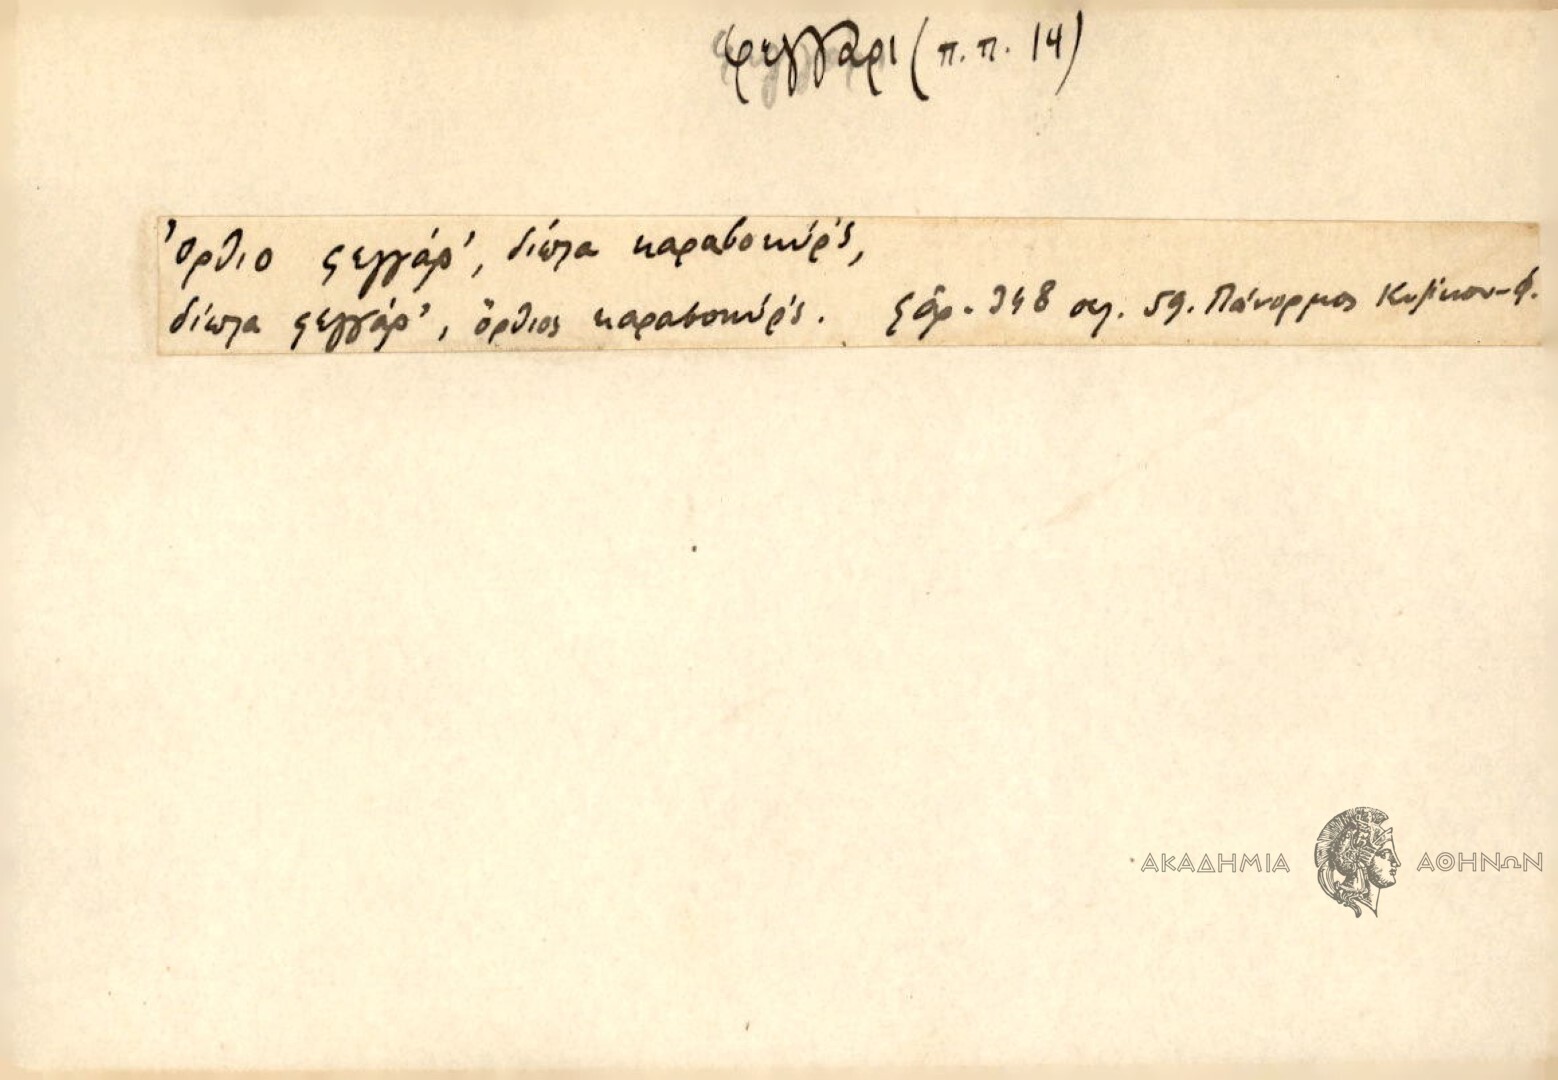 φεγγάρι (π.π. 14)
Ὄρθιο φεγγάρ', δίπλα καραβοκύρ'ς,
δίπλα φεγγάρ', ὄρθιος καραβοκύρ'ς. 348 σελ. 59. Πάνορμος Κυζίκου-Φ.
ΑΚΑΔΗΜΙΑ ΑΘΗΝΩΝ